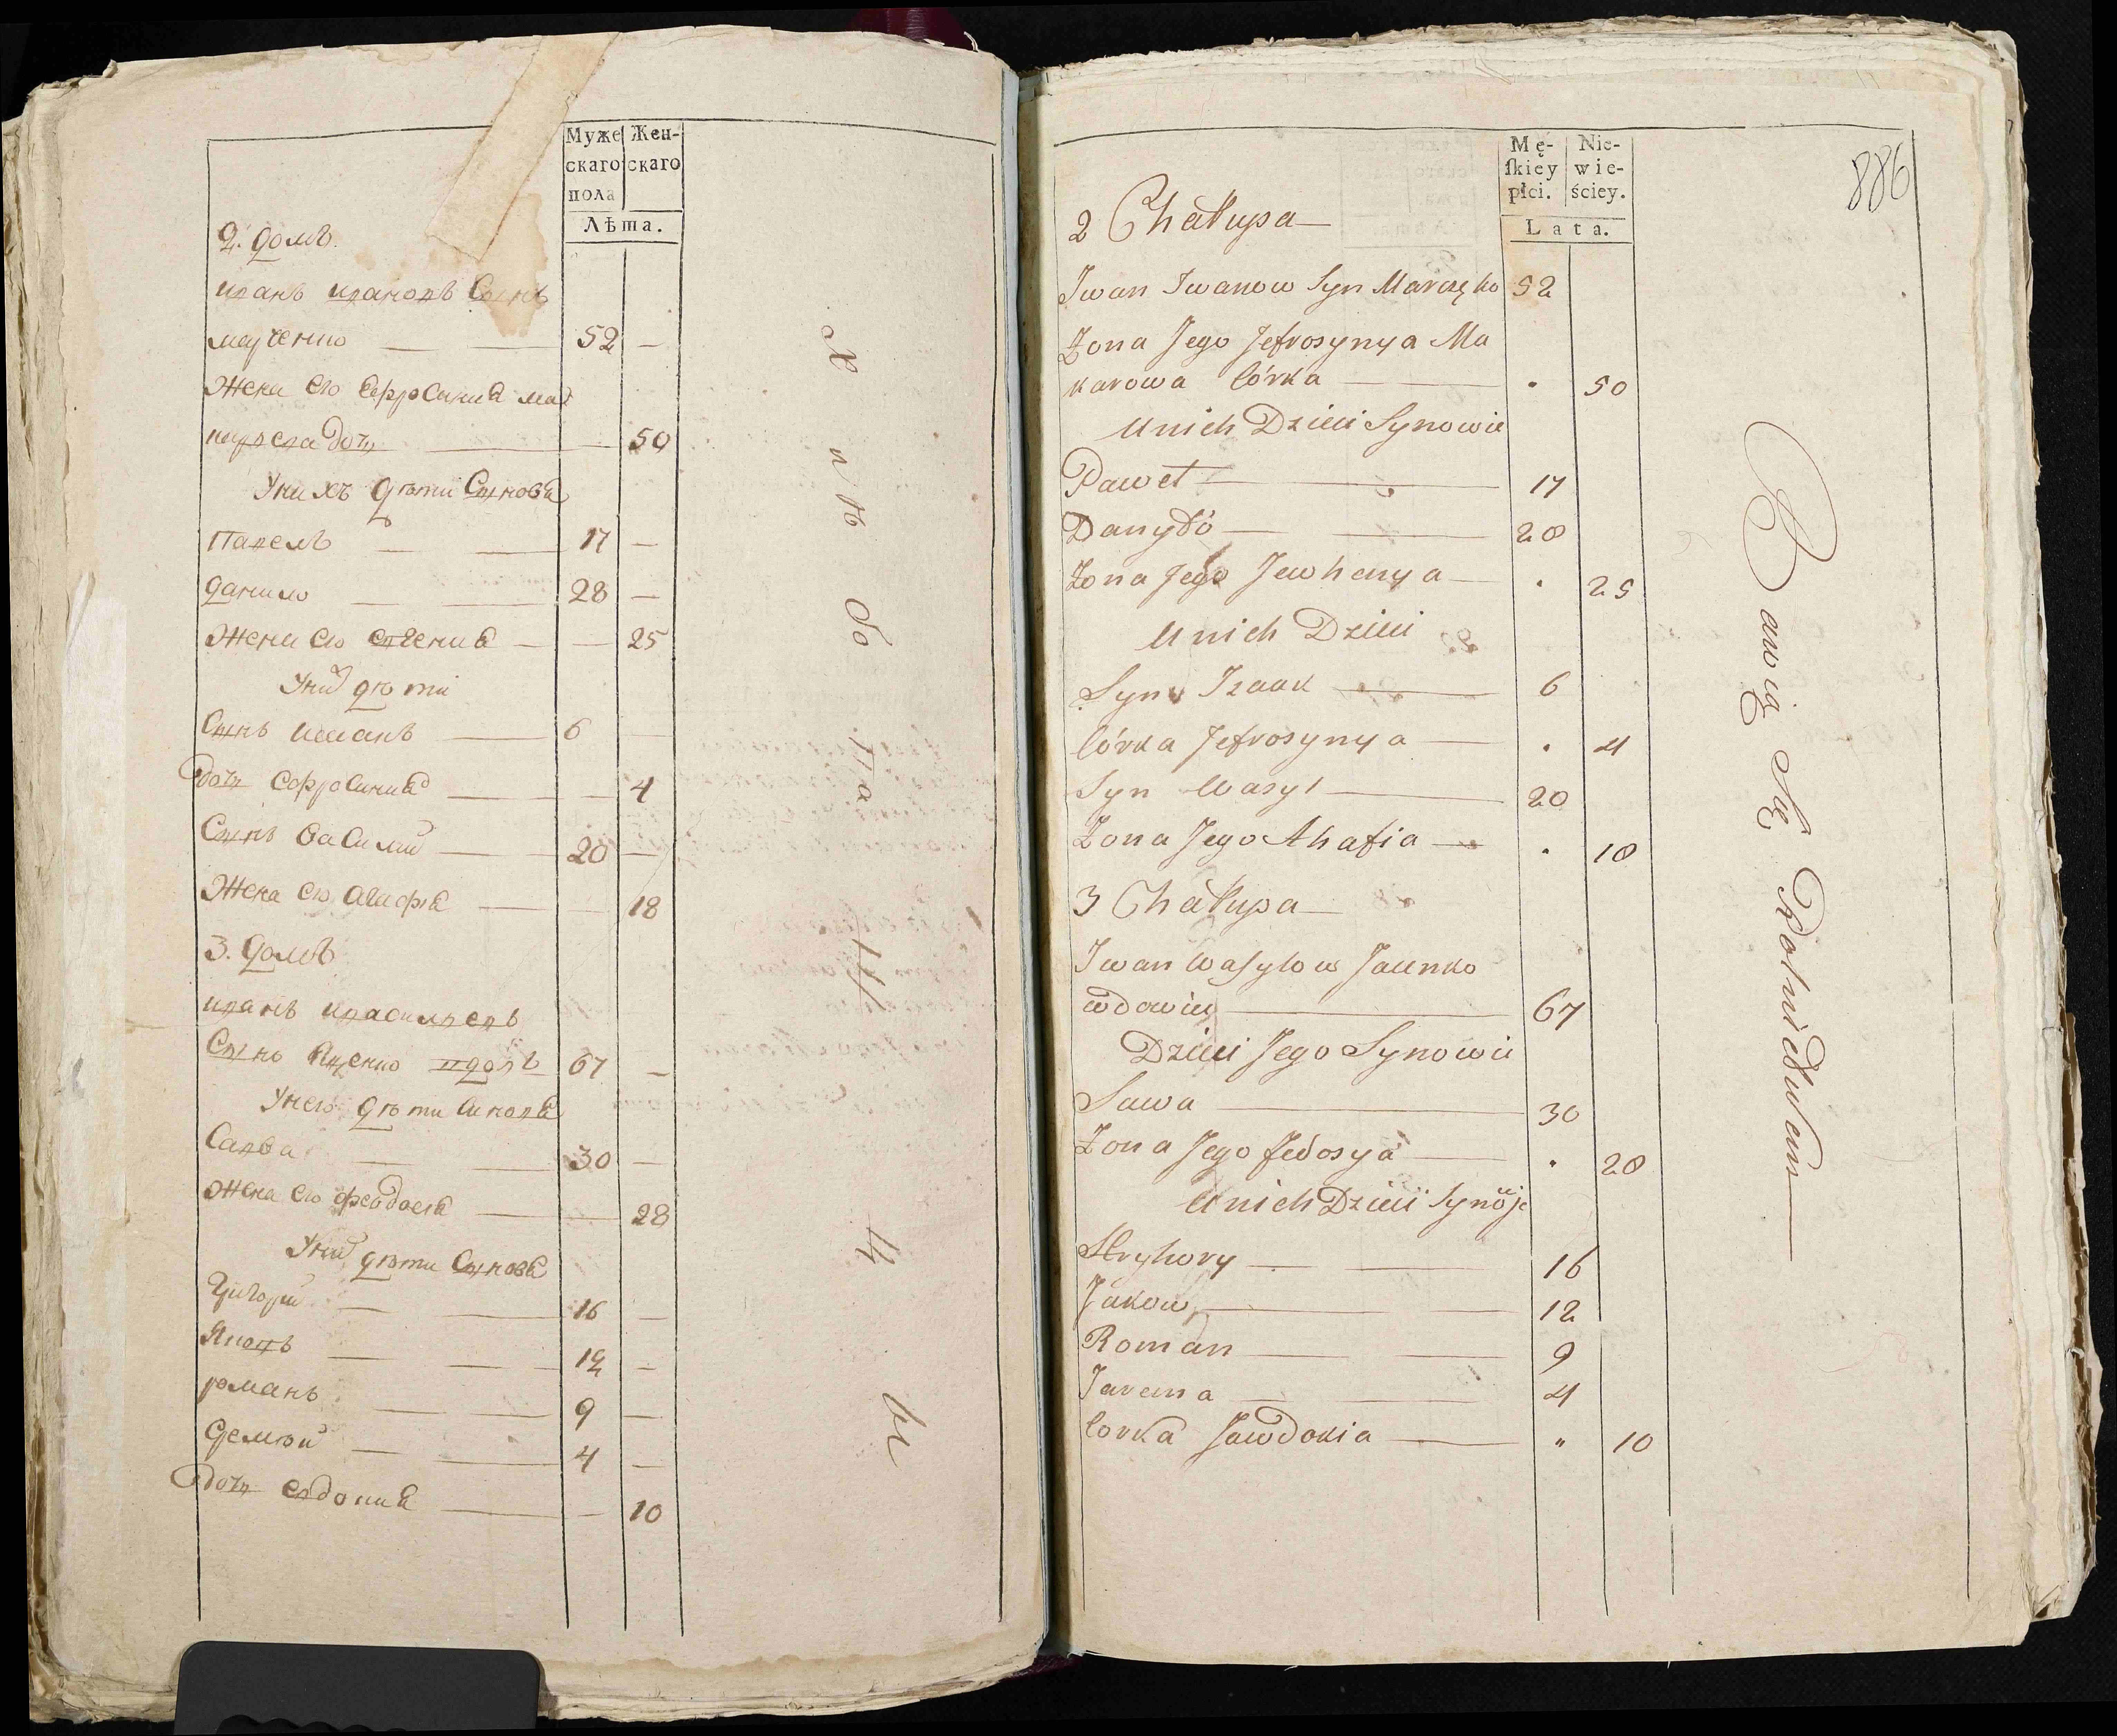 Муже
скаго
пола
Жен-
скаго
Лѣта.
2. домъ
иванъ ивановъ Сынъ
марченко — — 52 —
Жена его Еффросиния мак
карова дочь — — 50
У нихъ дѣти Синовя
Павелъ — — 17 —
данило — — 28 —
Жена его евгения — — 25
У них дѣти
Сынъ исаакъ — 6 —
дочь Еффросиния — — 4
Сынъ Василий — 20 —
Жена его Агафія — — 18
3. домъ
иванъ
Сынъ Яценко вдовъ 67 —
У него дѣти синовя
Савва — — 30 —
Жена его феодосія — — 28
У них дѣти Сыновя
Григорий — — 16 —
Яковъ — — 12 —
романъ — — 9 —
4 —
дочь евдокия — — 10
Хлѣбопашцы
Mę-
skiey
płci.
Nie-
wie-
ściey.
Lata.
886
2 Chałupa —
Iwan Iwanow Syn Marczęko 52
Żona Jego Jefrosynya Ma
karowa Córka — . 50
U nich Dzieci Synowie
Paweł — 17
Danyło — — 28
Żona Jego Jewhenya — . 25
U nich Dzieci
Syn Izaak — 6
Córka Jefrosynya — . 4
Syn Wasyl — 20
Żona Jego Ahafia — . 18
3 Chałupa —
Iwan Wasylow Jacenko
wdowiec — 67
Dzieci Jego Synowie
Sawa — 30
Żona Jego fedosya — . 28
U nich Dzieci Synowie
Hryhory — — 16
Jakow — 12
Roman — — 9
Jarema — — 4
Corka Jawdokia — " 10
Bawią Się Rolnictwem —